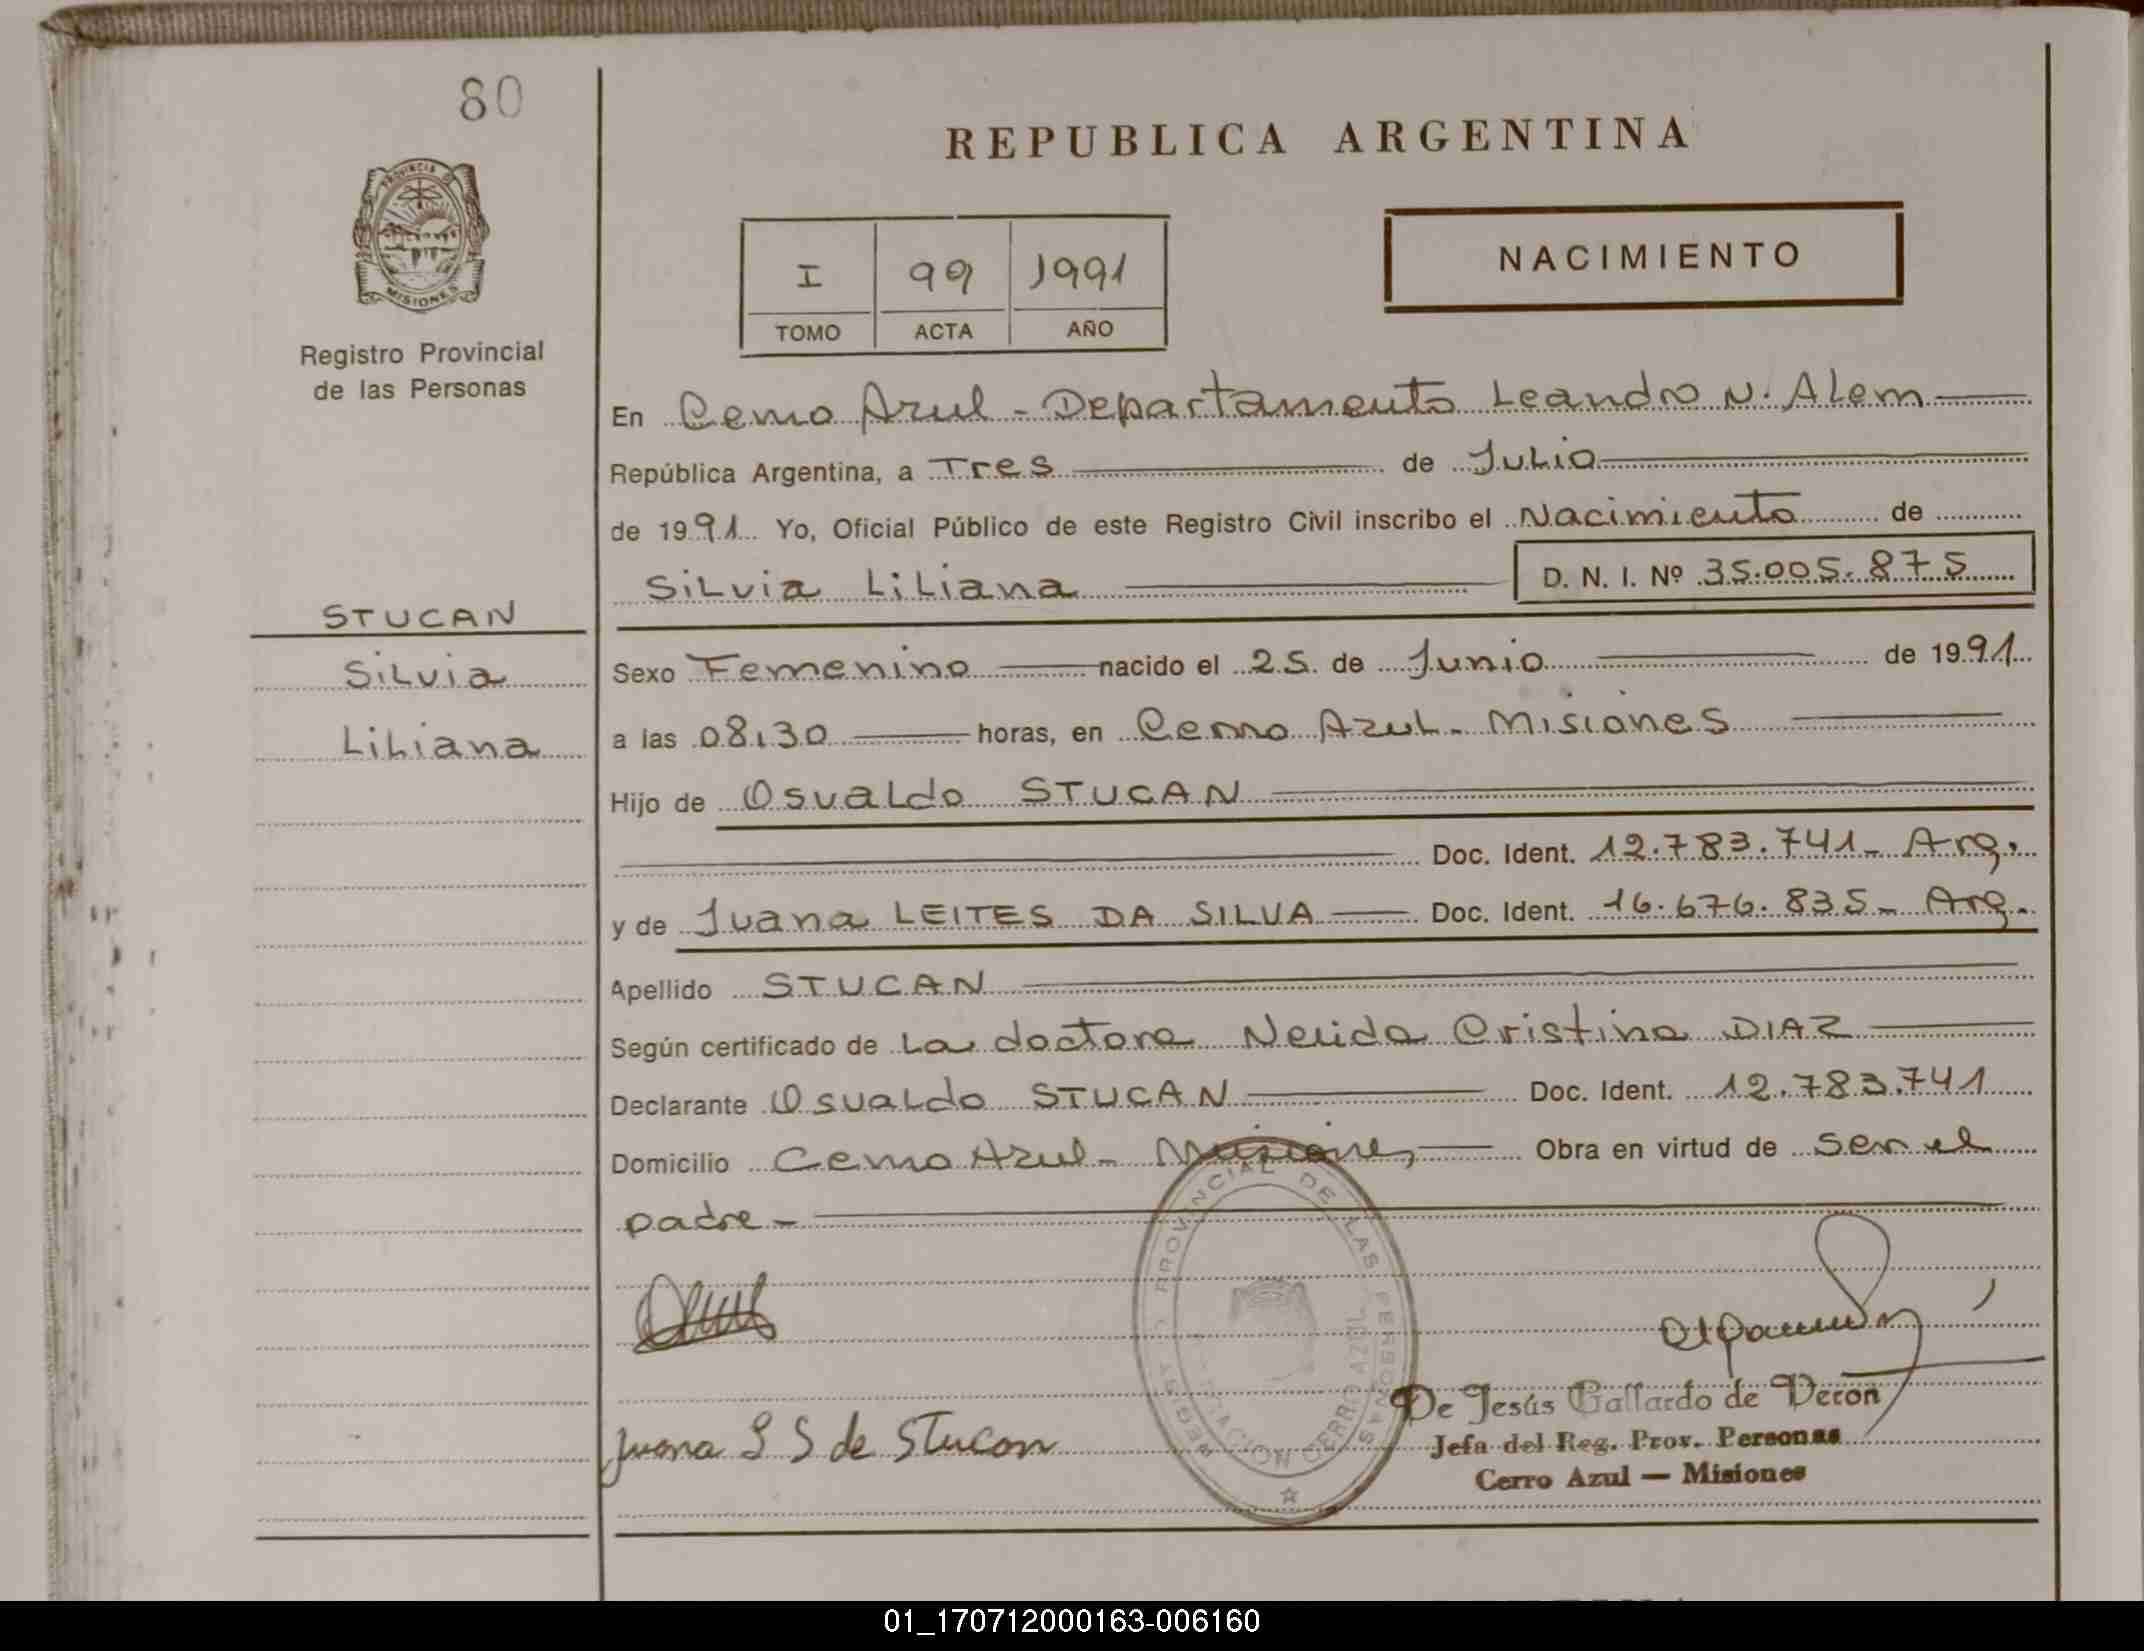 80
REPUBLICA ARGENTINA
PROVINCIA DE
MISIONES
NACIMIENTO
I 99 1991
TOMO ACTA AÑO
Registro Provincial
de las Personas
En Cerro Azul - Departamento Leandro N. Alem
República Argentina, a Tres de Julio
de 1991 Yo, Oficial Público de este Registro Civil inscribo el Nacimiento de
Silvia Liliana D. N. I. Nº 35.005.875
STUCAN
Silvia
Liliana
Sexo Femenino nacido el 25 de Junio de 1991
a las 08,30 horas, en Cerro Azul - Misiones
Hijo de Osvaldo STUCAN
Doc. Ident. 12.783.741 - Arg.
y de Juana LEITES DA SILVA Doc. Ident. 16.676.835 - Arg.
Apellido STUCAN
Según certificado de La doctora Nelida Cristina DIAZ
Declarante Osvaldo STUCAN Doc. Ident. 12.783.741
Domicilio Cerro Azul - Misiones Obra en virtud de ser el
padre -
PROVINCIAL DE LAS PERSONAS
CERRO AZUL
Juana S S de Stucan
De Jesús Gallardo de Verón
Jefa del Reg. Prov. Personas
Cerro Azul — Misiones
01_170712000163-006160